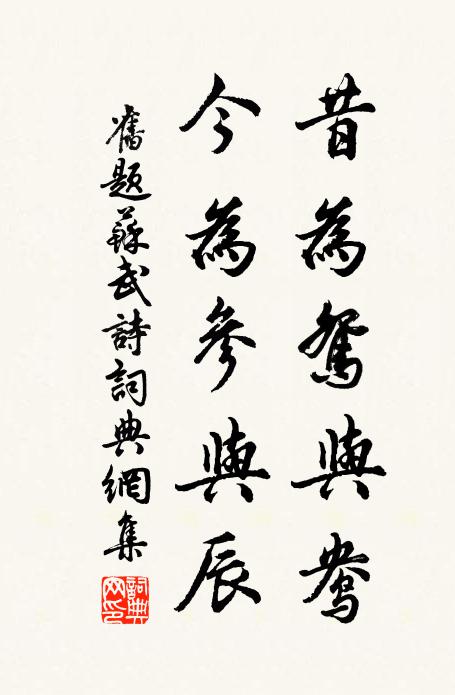 昔為鴛與鴦
今為參與辰
舊題蘇武詩詞典網集
詞典网印